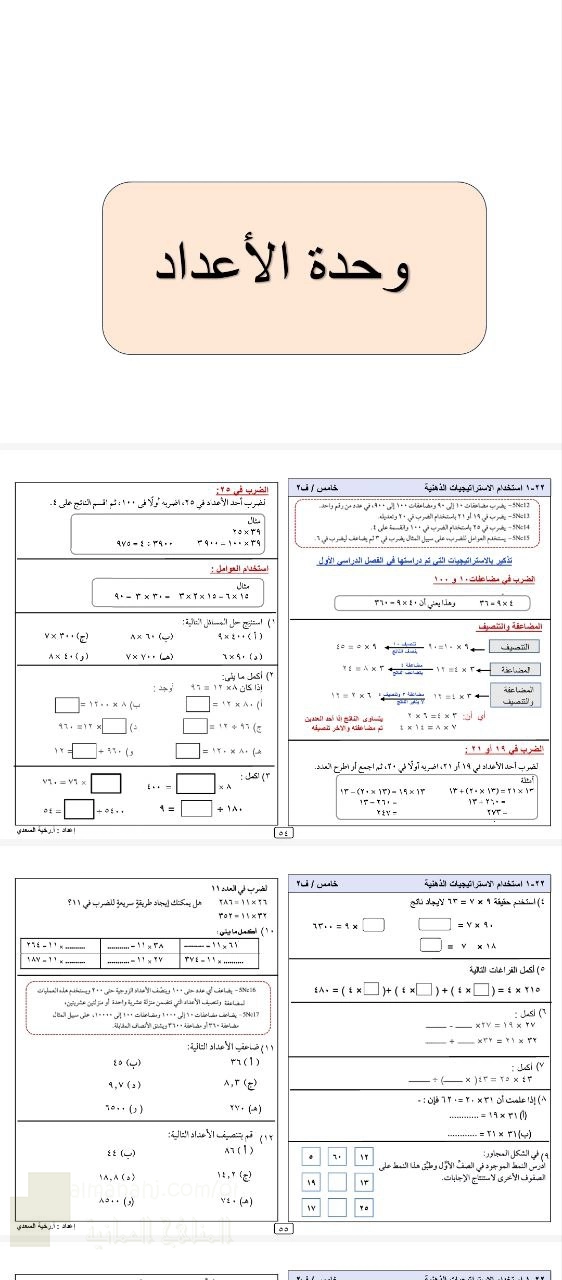 وحدة الأعداد
٢٢-١ استخدام الاستراتيجيات الذهنية
خامس / ف٢
5Nc12- يضرب مضاعفات ١٠ إلى ٩٠ ومضاعفات ١٠٠ إلى ٩٠٠، في عدد من رقم واحد.
5Nc13- يضرب في ١٩ أو ٢١ باستخدام الضرب في ٢٠ وتعديله.
5Nc14- يضرب في ٢٥ باستخدام الضرب في ١٠٠ والقسمة على ٤.
5Nc15- يستخدم العوامل للضرب، على سبيل المثال يضرب في ٣ ثم يضاعف ليضرب في ٦.
تذكير بالاستراتيجيات التي تم دراستها في الفصل الدراسي الأول
الضرب في مضاعفات ١٠ و ١٠٠
٤ × ٩ = ٣٦ وهذا يعني أن ٤٠ × ٩ = ٣٦٠
المضاعفة والتنصيف
التنصيف
المضاعفة
٣ × ٤ = ١٢
مضاعفة ٤
٣ × ٨ = ٢٤
المضاعفة والتنصيف
٣ × ٤ = ١٢
٦ × ٢ = ١٢
أي أن: ٣ × ٤ = ٦ × ٢
٧ × ٨ = ١٤ × ٤
يتساوى الناتج إذا أحد العددين تم مضاعفته والآخر تنصيفه
الضرب في ١٩ أو ٢١ :
لضرب أحد الأعداد في ١٩ أو ٢١، اضربه أولًا في ٢٠، ثم اجمع أو اطرح العدد.
أمثلة
١٣ × ٢١ = (١٣ × ٢٠) + ١٣
= ٢٦٠ + ١٣
= ٢٧٣
١٣ × ١٩ = (١٣ × ٢٠) – ١٣
= ٢٦٠ – ١٣
= ٢٤٧
الضرب في ٢٥:
لضرب أحد الأعداد في ٢٥، اضربه أولًا في ١٠٠؛ ثم اقسم الناتج على ٤.
مثال
٣٩ × ٢٥
٣٩ × ١٠٠ = ٣٩٠٠
٣٩٠٠ ÷ ٤ = ٩٧٥
استخدام العوامل :
مثال
١٥ × ٦ = ١٥ × ٢ × ٣ = ٣٠ × ٣ = ٩٠
١) استنتج حل المسائل التالية:
( أ ) ٤٠٠ × ٩ (ب) ٦٠ × ٨ (ج) ٣٠٠ × ٧
( د ) ٩٠ × ٦ (هـ) ٧٠٠ × ٧ ( و ) ٤٠ × ٨
٢) أكمل ما يلي:
إذا كان ٨× ١٢ = ٩٦ أوجد :
أ) ٨٠ × ١٢ =
ب) ٨ × ١٢٠٠ =
ج) ٩٦ ÷ ١٢ =
د) ×١٢ = ٩٦٠
هـ) ٨٠ × ١٢٠ =
و) ٩٦٠ ÷ = ١٢
٣) اكمل :
٨ × = ٤٠٠
× ٧٦ = ٧٦٠
١٨٠ ÷ = ٩
٥٤٠٠ ÷ = ٥٤
إعداد : أ.رخية السعدي
٥٤
٢٢-١ استخدام الاستراتيجيات الذهنية
خامس / ف٢
٤) استخدم حقيقة ٩ × ٧ = ٦٣ لايجاد ناتج
٩٠ × ٧ =
× ٩ = ٦٣٠٠
١٨ × ٧ =
٥) أكمل الفراغات التالية
٢١٥ × ٤ = ( × ٤ ) + ( × ٤ ) + ( × ٤ ) = ٤٨٠
٦) أكمل :
٢٧ × ١٩ = ٢٧× ____ – ____
٣٢ × ٢١ = ٣٢× ____ + ____
٧) أكمل :
٤٣ × ٢٥ = (٤٣ × ____) ÷ ____
٨) إذا علمت أن ٣١ × ٢٠ = ٦٢٠ فإن : -
(أ) ٣١ × ١٩ = ............
(ب) ٣١ × ٢١ = ............
٩) في الشكل المجاور:
ادرس النمط الموجود في الصف الأوّل وطبّق هذا النمط على
الصفوف الأخرى لاستنتاج الإجابات.
١٢ ٦٠ ٥
١٣ ١٩
٢٥ ١٧
لضرب في العدد ١١
٢٦ × ١١ = ٢٨٦
٣٢ × ١١ = ٣٥٢
هل يمكنك إيجاد طريقةٍ سريعةٍ للضرب في ١١؟
١٠) أكمل ما يلي:
٦١ × ١١ = ..........
٣٨ × ١١ = ..........
.......... × ١١ = ٢٦٤
.......... × ١١ = ٣٧٤
٢٧ × ١١ = ..........
.......... × ١١ = ١٨٧
5Nc16- يضاعف أي عدد حتى ١٠٠ وينصّف الأعداد الزوجية حتى ٢٠٠ ويستخدم هذه العمليات
لمضاعفة وتنصيف الأعداد التي تتضمن منزلة عشرية واحدة أو منزلتين عشريتين.
5Nc17- يضاعف مضاعفات ١٠ إلى ١٠٠٠ ومضاعفات ١٠٠ إلى ١٠٠٠٠، على سبيل المثال
مضاعفة ٣٦٠ أو مضاعفة ٣٦٠٠ ويشتق الأنصاف المقابلة.
١١) ضاعف الأعداد التالية:
( أ ) ٣٦ (ب) ٤٥
(ج) ٨,٣ ( د ) ٩,٧
(هـ) ٢٧٠ ( و ) ٦٥٠٠
١٢) قم بتنصيف الأعداد التالية:
( أ ) ٨٦ (ب) ٤٤
(ج) ١٤,٢ ( د ) ١٨,٨
(هـ) ٧٤٠ (و) ٨٥٠٠
almanahj.com/
المناهج العمانية
إعداد : أ.رخية السعدي
٥٥